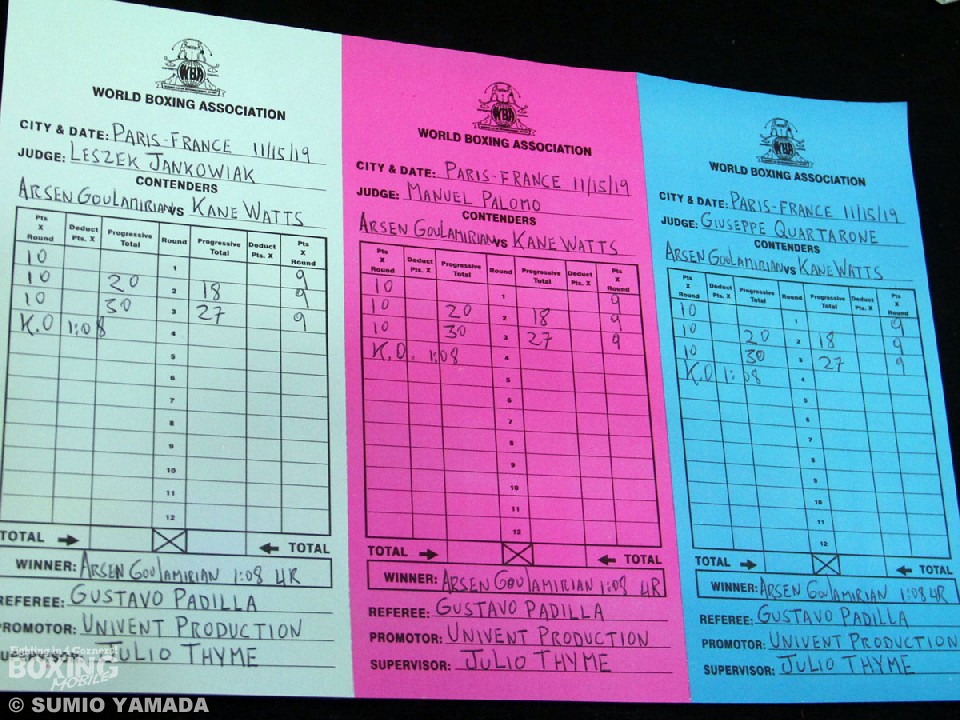 WBA
WORLD BOXING ASSOCIATION
CITY & DATE: PARIS-FRANCE 11/15/19
JUDGE: LESZEK JANKOWIAK
CONTENDERS
ARSEN GOULAMIRIAN VS KANE WATTS
Pts X Round Deduct Pts. X Progressive Total Round Progressive Total Deduct Pts. X Pts X Round
10 1 9
10 20 2 18 9
10 30 3 27 9
K.O 1:08 4
5
6
7
8
9
10
11
12
TOTAL TOTAL
WINNER: ARSEN GOULAMIRIAN 1:08 4R
REFEREE: GUSTAVO PADILLA
PROMOTOR: UNIVENT PRODUCTION
JULIO THYME
WBA
WORLD BOXING ASSOCIATION
CITY & DATE: PARIS-FRANCE 11/15/19
JUDGE: MANUEL PALOMO
CONTENDERS
ARSEN GOULAMIRIAN VS KANE WATTS
Pts X Round Deduct Pts. X Progressive Total Round Progressive Total Deduct Pts. X Pts X Round
10 1 9
10 20 2 18 9
10 30 3 27 9
K.O. 1:08 4
5
6
7
8
9
10
11
12
TOTAL TOTAL
WINNER: ARSEN GOULAMIRIAN 1:08 4R
REFEREE: GUSTAVO PADILLA
PROMOTOR: UNIVENT PRODUCTION
SUPERVISOR: JULIO THYME
WBA
WORLD BOXING ASSOCIATION
CITY & DATE: PARIS-FRANCE 11/15/19
JUDGE: GIUSEPPE QUARTARONE
CONTENDERS
ARSEN GOULAMIRIAN VS KANE WATTS
Pts X Round Deduct Pts. X Progressive Total Round Progressive Total Deduct Pts. X Pts X Round
10 1 9
10 20 2 18 9
10 30 3 27 9
K.O 1:08 4
5
6
7
8
9
10
11
12
TOTAL TOTAL
WINNER: ARSEN GOULAMIRIAN 1:08 4R
REFEREE: GUSTAVO PADILLA
PROMOTOR: UNIVENT PRODUCTION
SUPERVISOR: JULIO THYME
Fighting in 4 Corners!
BOXING
MOBILE
© SUMIO YAMADA